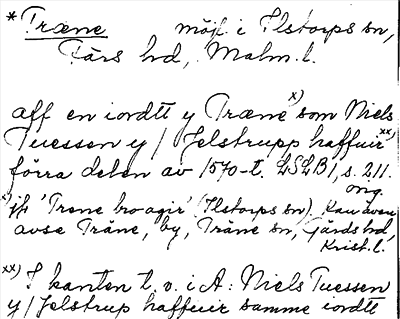 * Træne möjl. i Ilstorps sn,
Färs hd, Malm. l.
aff en iordtt y Træne x) som Niels
Tuessen y / Jelstrupp haffuir xx)
förra delen av 1570-t. LSLB1, s. 211.
orig.
x) jfr 'Trene bro agir' (Ilstorps sn). Kan även
avse Träne, by, Träne sn, Gärds hd,
Krist. l.
xx) I kanten t. v. i A: Niels Tuessen
y / Jelstrup haffuir samme iordtt